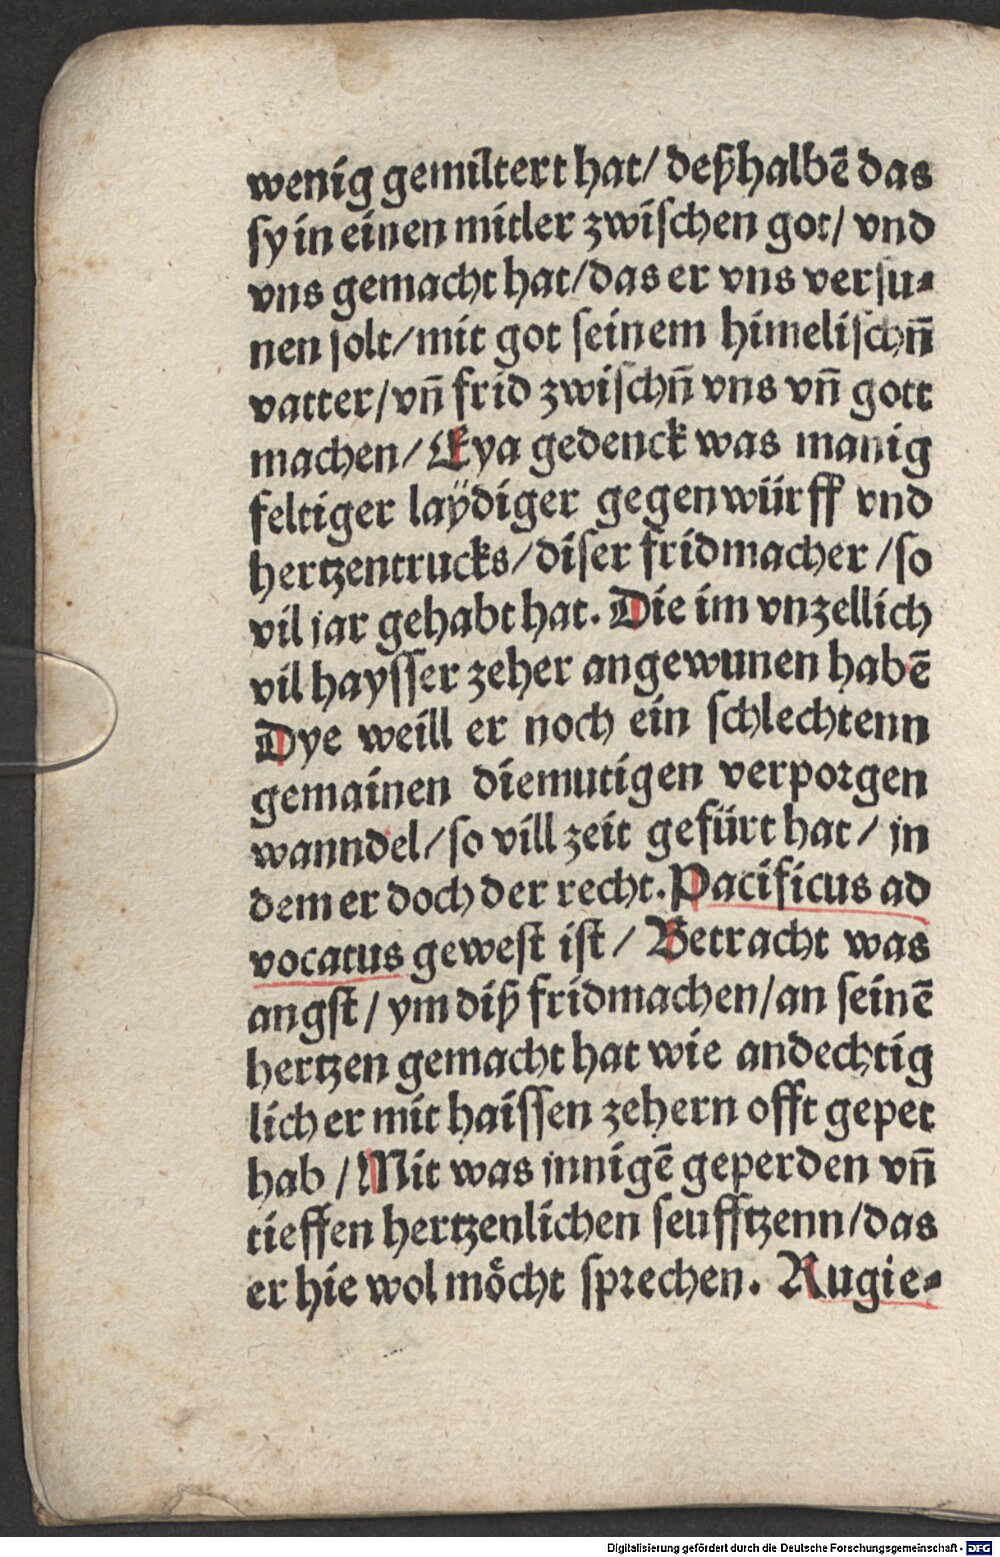 wenig gemiltert hat/ deßhalbē das
sy in einen mitler zwischen got/ vnd
vns gemacht hat/das er vns versu⸗
nen solt/mit got seinem himelischn̄
vatter/vn̄ frid zwischn̄ vns vn̄ gott
machen/ Eya gedenck was manig
feltiger laÿdiger gegenwürff vnd
hertzentrucks/diser fridmacher /so
vil jar gehabt hat. Die im vnzellich
vil haysser zeher angewunen habē
Dye weill er noch ein schlechtenn
gemainen diemutigen verporgen
wanndel/so vill zeit gefürt hat/ jn
dem er doch der recht. Pacificus ad
vocatus gewest ist/ Betracht was
angst/ ym diß fridmachen/an seinē
hertzen gemacht hat wie andechtig
lich er mit haissen zehern offt gepet
hab /Mit was jnnigē geperden vn̄
tieffen hertzenlichen seufftzenn/das
er hie wol moͤcht sprechen. Rugie⸗
Digitalisierung gefördert durch die Deutsche Forschungsgemeinschaft - DFG